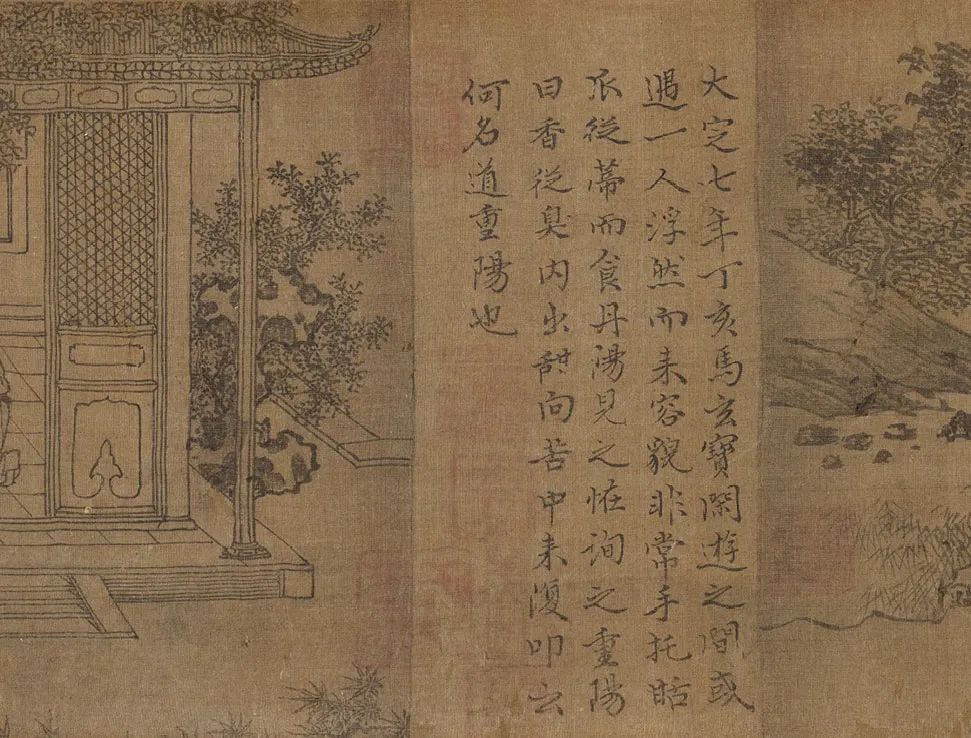 大定七年丁亥馬玄寶閑遊之間或
遇一人浮然而来容貌非常手托甜
瓜從蒂而食丹陽見之恠詢之重陽
曰香從臭内出甜向苦中来復叩云
何名道重陽也